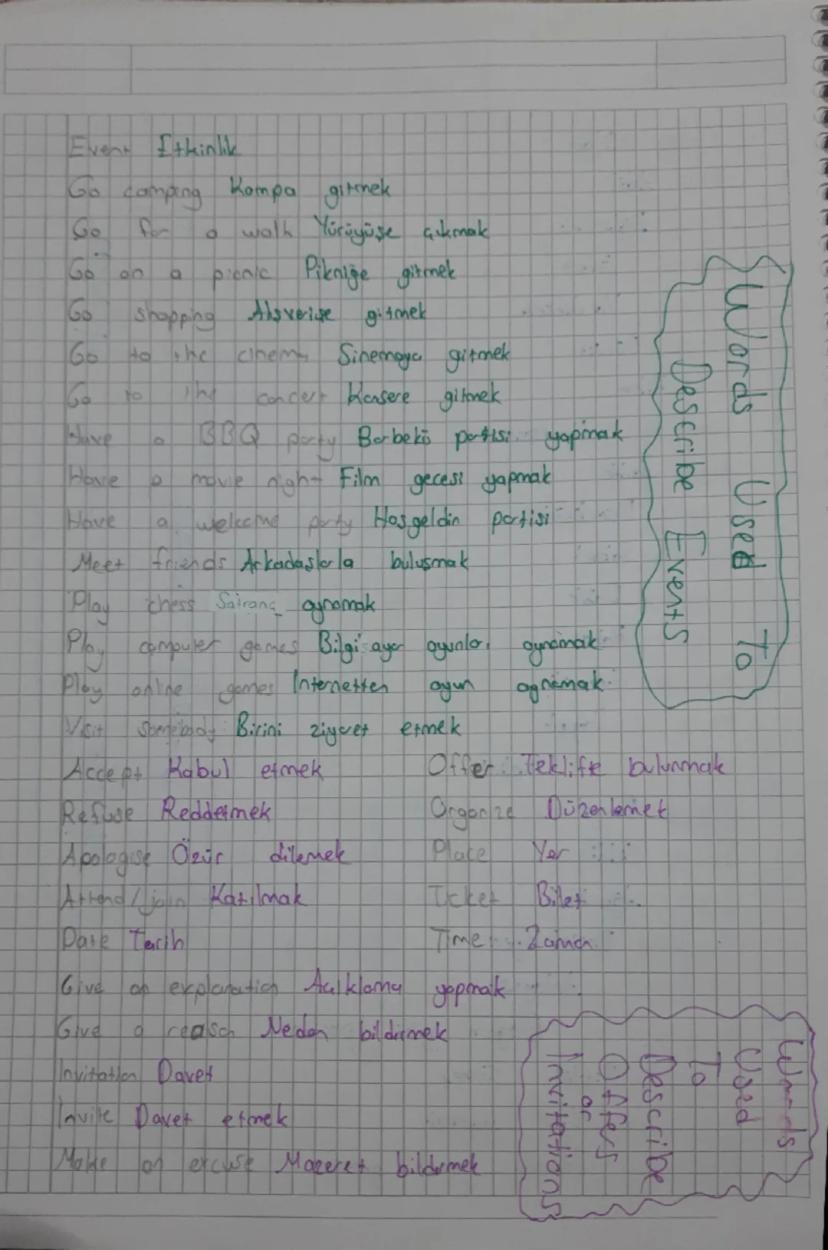 Event Etkinlik
Go camping Kampa gitmek
Go for a walk Yürüyüşe çıkmak
Go on a picnic Pikniğe gitmek
Go shopping Alışverişe gitmek
Go to the cinema Sinemaya gitmek
Go to the concert Konsere gitmek
Have a BBQ party Barbekü partisi yapmak
Have a movie night Film gecesi yapmak
Have a welcome party Hoşgeldin partisi
Meet friends Arkadaşlarla buluşmak
Play chess Satranç oynamak
Play computer games Bilgisayar oyunları oynamak
Play online games Internetten oyun oynamak
Visit somebody Birini ziyaret etmek
Words Used To
Describe Events
Accept Kabul etmek
Refuse Reddetmek
Apologise Özür dilemek
Attend/join Katılmak
Date Tarih
Offer Teklifte bulunmak
Organize Düzenlemek
Place Yer
Ticket Bilet
Time Zaman
Give an explanation Açıklama yapmak
Give a reason Neden bildirmek
Invitation Davet
Invite Davet etmek
Make an excuse Mazeret bildirmek
Words
Used
To
Describe
Offers
or
Invitations